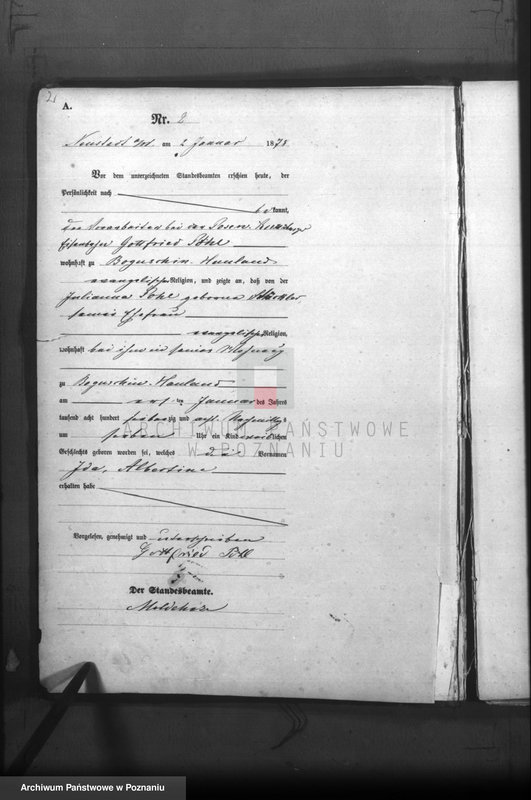 A.
Nr. 2
Neustadt a/W. am 2 Januar 1878
Vor dem unterzeichneten Standesbeamten erschien heute, der
Persönlichkeit nach
be kannt,
der Vorarbeiter bei der Posen
Eisenbahn Gottfried
wohnhaft zu Boguschin Hauland
evangelischer Religion, und zeigte an, daß von der
Julianna geborene
seiner Ehefrau
evangelischer Religion,
wohnhaft bei ihm in seiner Wohnung
zu Boguschin Hauland
am ersten Januar des Jahres
tausend acht hundert siebenzig und acht Nachmittags
um sieben Uhr ein Kind weiblichen
Geschlechts geboren worden sei, welches die Vornamen
Ida, Albertine
erhalten habe
Vorgelesen, genehmigt und unterschrieben
Gottfried
Der Standesbeamte.
ARCHIWUM PAŃSTWOWE
W POZNANIU
Archiwum Państwowe w Poznaniu